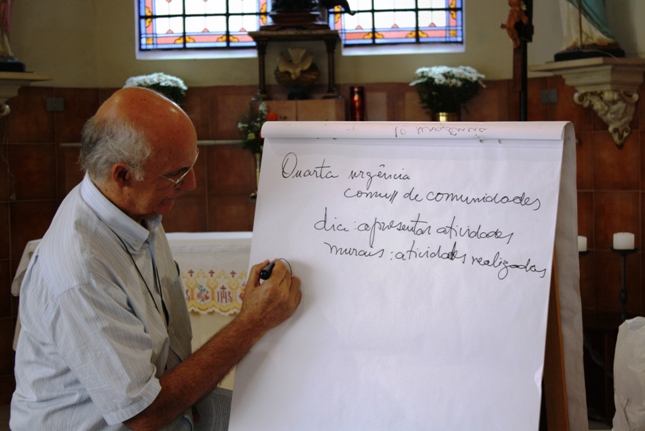 Quarta urgência
comu// de comunidades
dica: apresentar atividades
murais: atividades realizadas
IHS